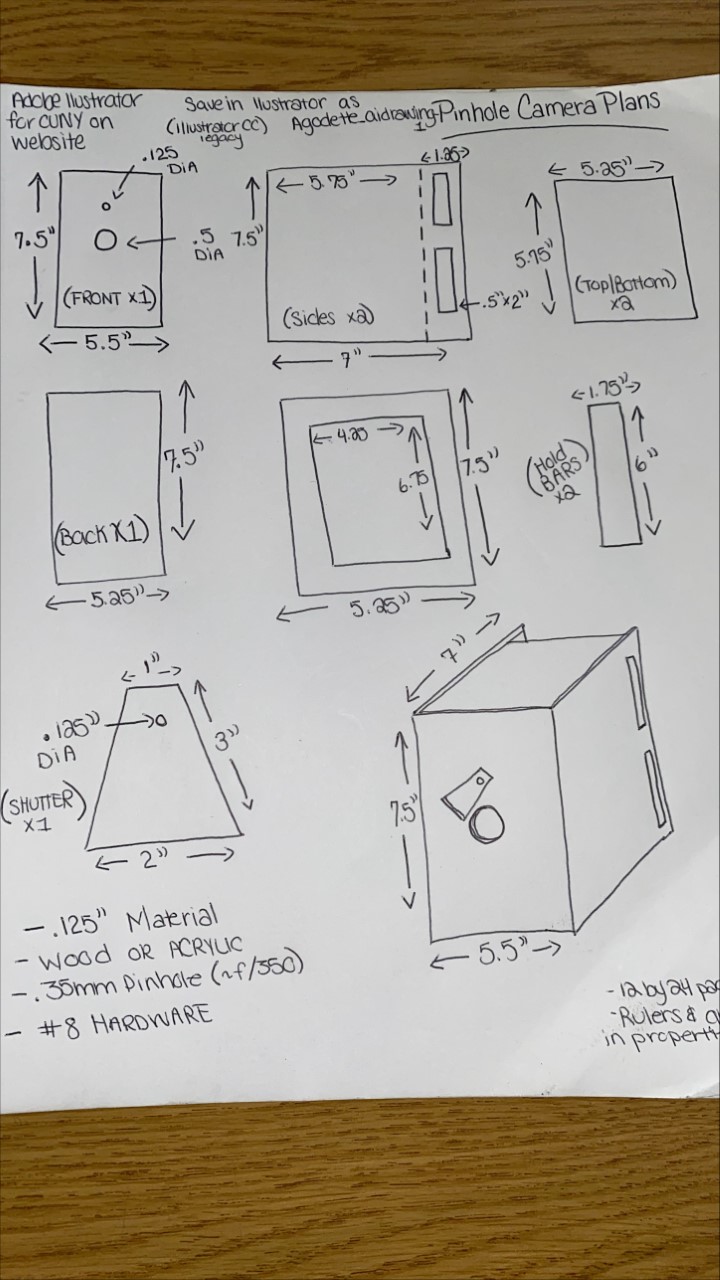 Adobe Ilustrator
for CUNY on
website
Save in Ilustrator as
(illustrator CC)
legacy
Agodette-aidrawing-1
Pinhole Camera Plans
.125
DiA
7.5"
.5
DiA
(FRONT x1)
5.5"
1.25
5.75"
7.5"
(Sides x2)
.5"x2"
7"
5.25"
5.75"
(Top/Bottom)
x2
7.5"
(Back X1)
5.25"
4.25
6.75
7.5"
5.25"
1.75"
(Hold
BARS)
x2
6"
1"
.125"
DiA
3"
(SHUTTER)
x1
2"
7"
7.5"
5.5"
- .125" Material
- Wood OR ACRYLIC
- .35mm Pinhole (~f/350)
- #8 HARDWARE
- 12 by 24
- Rulers &
in